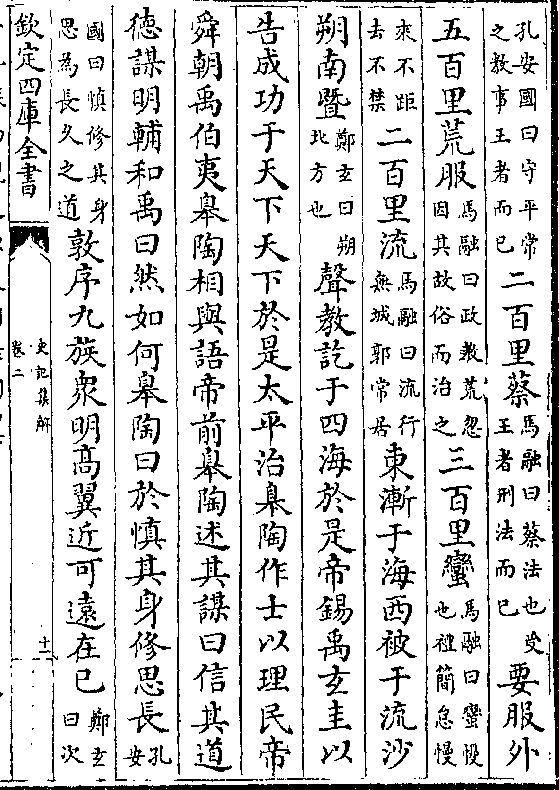 孔安國曰守平常之教事王者而已二百里蔡馬融曰蔡法也受王者刑法而已要服外
五百里荒服馬融曰政教荒忽因其故俗而治之三百里蠻馬融曰蠻慢也禮簡怠慢
來不距去不禁二百里流馬融曰流行無城郭常居東漸于海西被于流沙
朔南暨鄭玄曰朔北方也聲教訖于四海於是帝錫禹玄圭以
告成功于天下天下於是太平治臯陶作士以理民帝
舜朝禹伯夷臯陶相與語帝前臯陶述其謀曰信其道
德謀明輔和禹曰然如何臯陶曰於慎其身修思長孔安
國曰慎修其身思為長久之道敦序九族衆明高翼近可遠在已鄭玄曰次
欽定四庫全書
史記集解
卷二